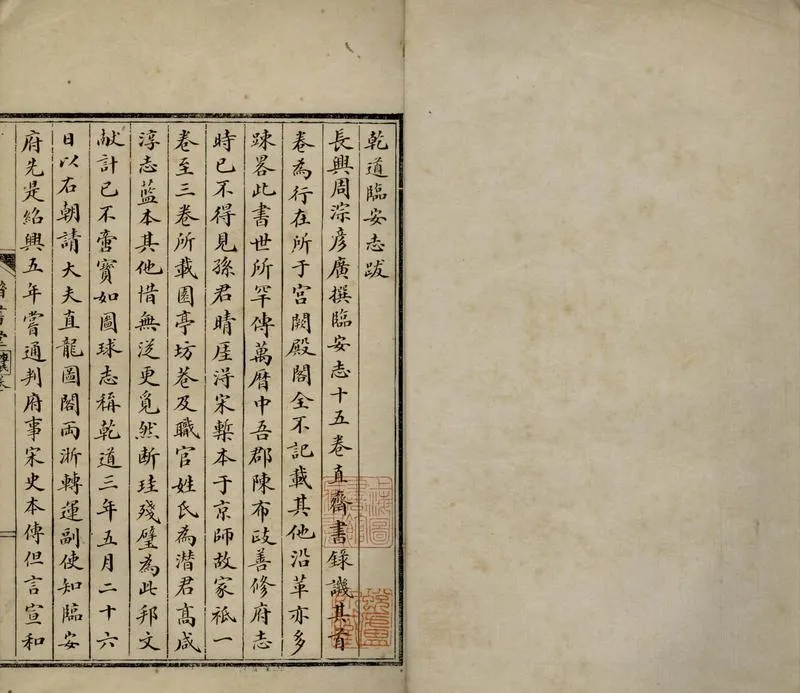 乾道臨安志跋
長興周淙彥廣撰臨安志十五卷直齋書錄譏其首
卷為行在所于宮闕殿閣全不記載其他沿革亦多
踈畧此書世所罕傳萬曆中吾郡陳布政善修府志
時已不得見孫君晴厓淂宋槧本于京師故家祗一
卷至三卷所載園亭坊巷及職官姓氏為潛君高咸
淳志藍本其他惜無從更覓然断珪殘璧為此邦文
献計已不啻寶如圖球志稱乾道三年五月二十六
日以右朝請大夫直龍圖閣兩浙轉運副使知臨安
府先是紹興五年嘗通判府事宋史本傳但言宣和
上海圖書館藏